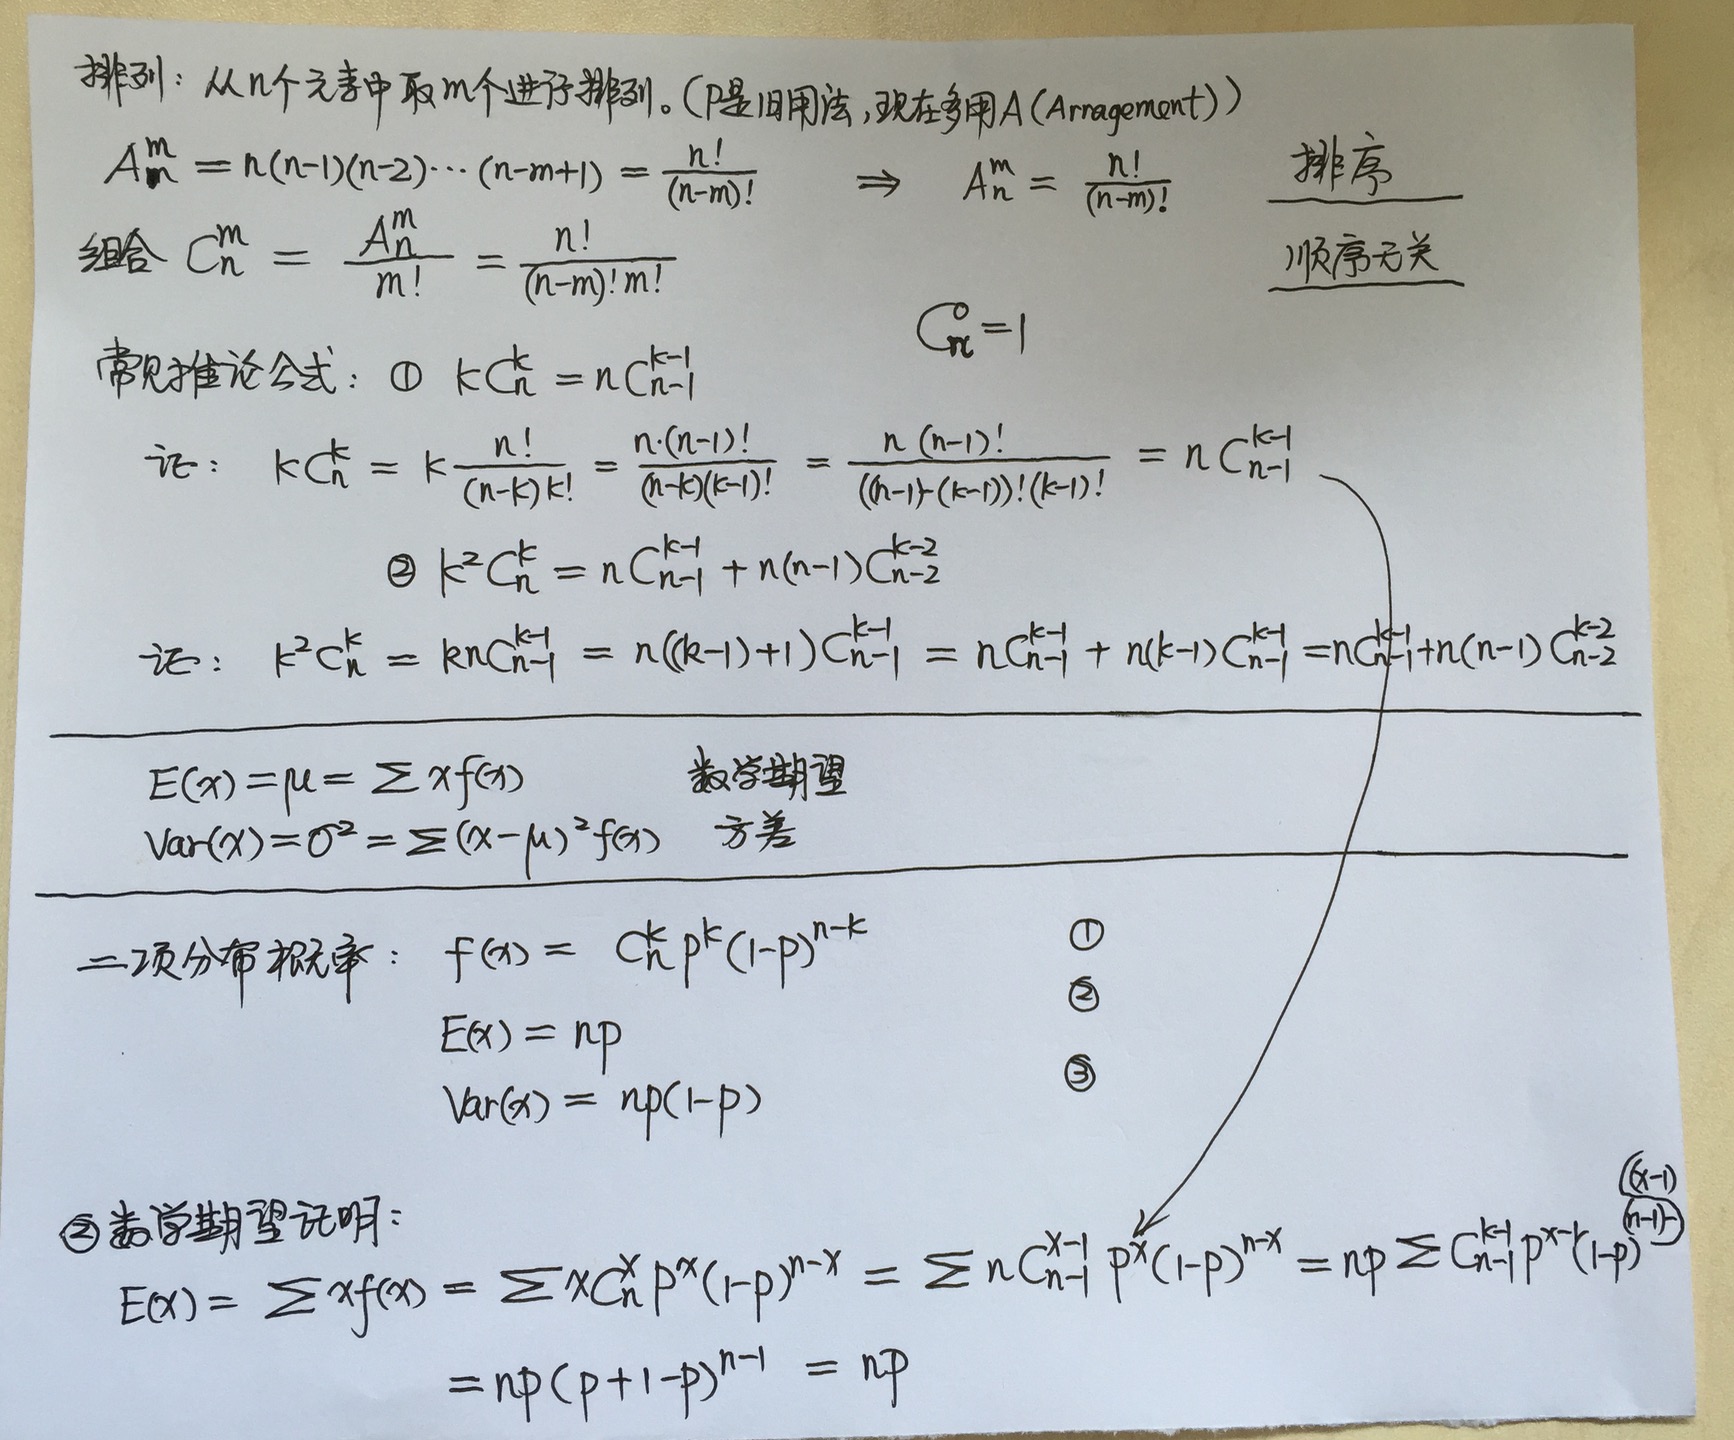 排列：从n个元素中取m个进行排列。（P是旧用法，现在多用A（Arragement））
A_n^m = n(n-1)(n-2)⋯(n-m+1) = n!/(n-m)! ⇒ A_n^m = n!/(n-m)! 排序
组合 C_n^m = A_n^m/m! = n!/((n-m)!m!) 顺序无关
C_n^0 = 1
常见推论公式：① kC_n^k = nC_{n-1}^{k-1}
证：kC_n^k = k n!/((n-k)k!) = n·(n-1)!/((n-k)(k-1)!) = n(n-1)!/(((n-1)-(k-1))!(k-1)!) = nC_{n-1}^{k-1}
② k²C_n^k = nC_{n-1}^{k-1} + n(n-1)C_{n-2}^{k-2}
证：k²C_n^k = knC_{n-1}^{k-1} = n((k-1)+1)C_{n-1}^{k-1} = nC_{n-1}^{k-1} + n(k-1)C_{n-1}^{k-1} = nC_{n-1}^{k-1} + n(n-1)C_{n-2}^{k-2}
E(x) = μ = Σxf(x) 数学期望
Var(x) = σ² = Σ(x-μ)²f(x) 方差
二项分布概率：f(x) = C_n^k p^k(1-p)^{n-k} ①
E(x) = np ②
Var(x) = np(1-p) ③
②数学期望证明：
E(x) = Σxf(x) = ΣxC_n^x p^x(1-p)^{n-x} = ΣnC_{n-1}^{x-1} p^x(1-p)^{n-x} = npΣC_{n-1}^{k-1} p^{x-1}(1-p)^{(n-1)-(x-1)}
= np(p+1-p)^{n-1} = np